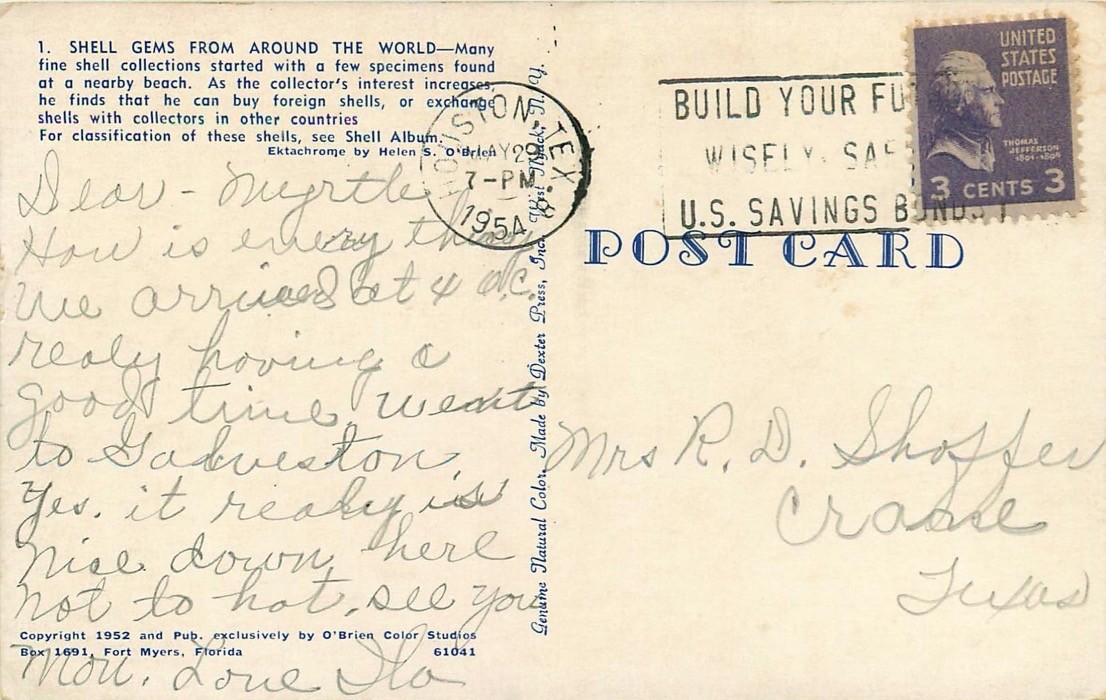 1. SHELL GEMS FROM AROUND THE WORLD—Many
fine shell collections started with a few specimens found
at a nearby beach. As the collector's interest increases,
he finds that he can buy foreign shells, or exchange
shells with collectors in other countries
For classification of these shells, see Shell Album.
Ektachrome by Helen S. O'Brien
Dear Myrtle
How is every thing
We arrived at 4 o.c.
realy having a
good time, went
to Galveston.
Yes. it realy is
nice down here
not to hot. see you
Mon. Love Ila
Copyright 1952 and Pub. exclusively by O'Brien Color Studios
Box 1691, Fort Myers, Florida 61041
Genuine Natural Color, Made by Dexter Press, Inc., West Nyack, N. Y.
HOUSTON, TEX. 8
MAY 29
7-PM
1954
BUILD YOUR FU
WISELY SAF
U.S. SAVINGS BONDS
UNITED
STATES
POSTAGE
THOMAS
JEFFERSON
1801-1809
3 CENTS 3
POST CARD
Mrs R. D. Shoffer
Crane
Texas